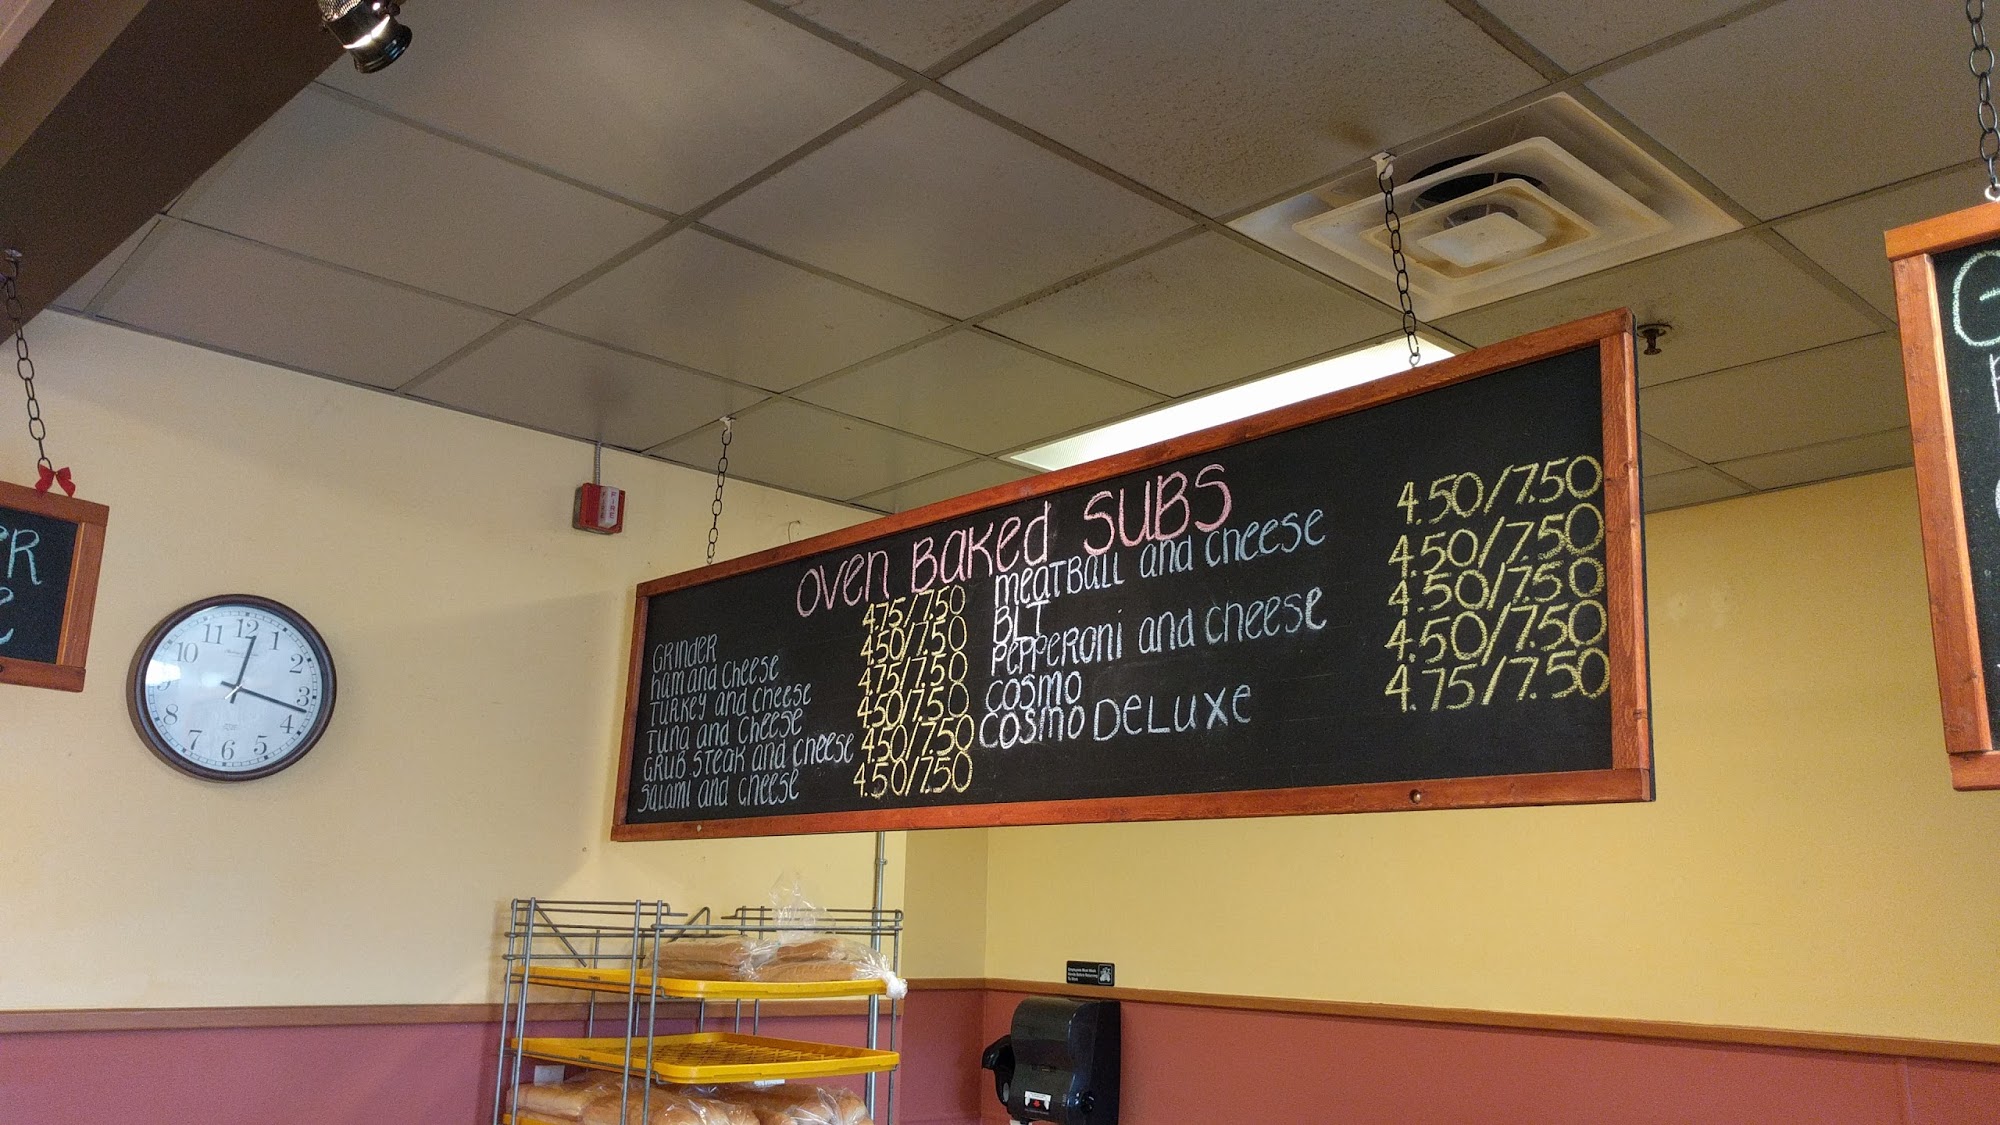 OVEN BAKED SUBS
GRINDER 4.75/7.50
HAM AND CHEESE 4.50/7.50
TURKEY AND CHEESE 4.75/7.50
TUNA AND CHEESE 4.50/7.50
GRUB STEAK AND CHEESE 4.50/7.50
SALAMI AND CHEESE 4.50/7.50
MEATBALL AND CHEESE 4.50/7.50
BLT 4.50/7.50
PEPPERONI AND CHEESE 4.50/7.50
COSMO 4.50/7.50
COSMO DELUXE 4.75/7.50
FIRE
12
1
2
3
4
5
6
7
8
10
11